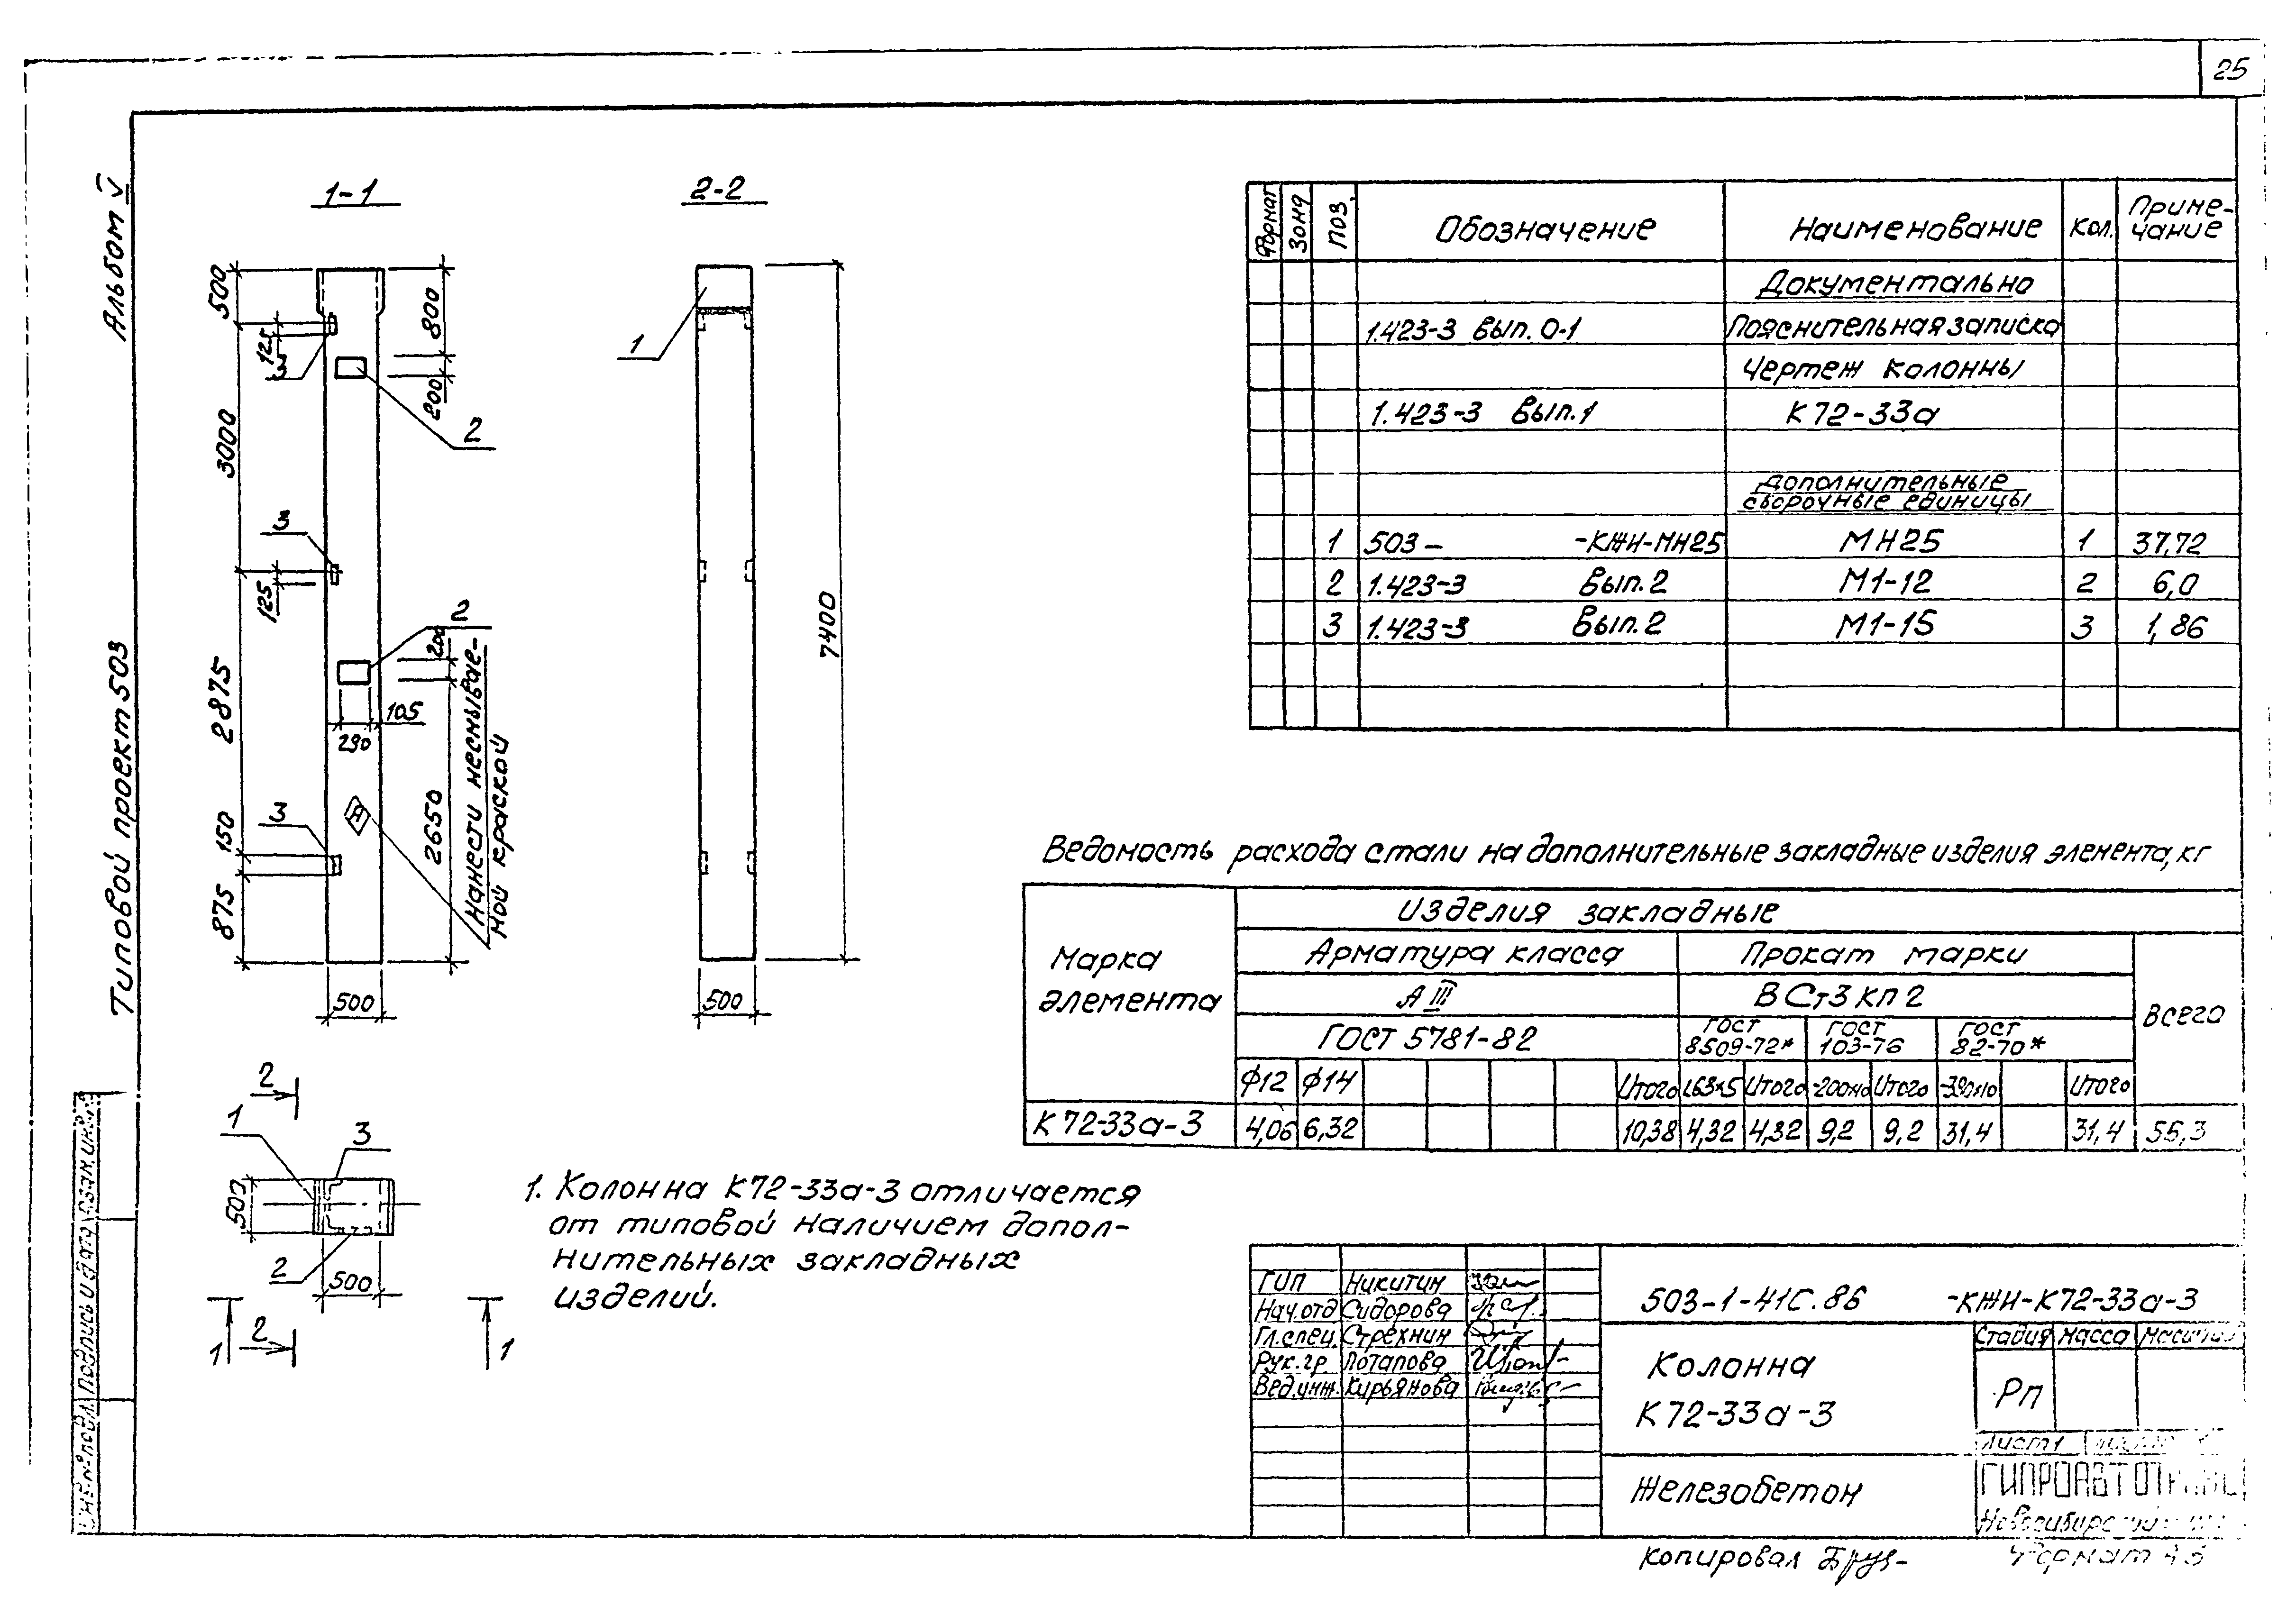 25
Альбом V
Типовой проект 503
1-1
2-2
500
125
3
3000
3
125
2875
3
150
875
800
200
2
2
200
105
290
2650
Нанести несмывае-
мой краской
Я
500
1
7400
500
2
1
3
500
2
500
1
2
1
1. Колонна К72-33а-3 отличается
от типовой наличием допол-
нительных закладных
изделий.
Формат Зона Поз. Обозначение Наименование Кол. Приме-
чание
Документально
1.423-3 вып. 0-1 Пояснительная записка
Чертеж колонны
1.423-3 вып.1 К72-33а
Дополнительные
сборочные единицы
1 503- -КЖИ-МН25 МН25 1 37,72
2 1.423-3 вып.2 М1-12 2 6,0
3 1.423-3 вып.2 М1-15 3 1,86
Ведомость расхода стали на дополнительные закладные изделия элемента, кг
Марка
элемента
Изделия закладные
Арматура класса Прокат марки
А III ВСт3кп2
Всего
ГОСТ 5781-82 ГОСТ
8509-72* ГОСТ
103-76 ГОСТ
82-70*
ф12 ф14 Итого L63×5 Итого -200×10 Итого -390×10 Итого
К72-33а-3 4,06 6,32 10,38 4,32 4,32 9,2 9,2 31,4 31,4 55,3
ГИП Никитин
Нач.отд Сидорова
Гл.спец. Стрехнин
Рук.гр. Потапова
Вед.инж. Кирьянова
503-1-41с.86 -КЖИ-К72-33а-3
Колонна
К72-33а-3
Стадия Масса Масштаб
РП
Лист 1
Железобетон
Инв.№ подл. Подпись и дата Взам.инв.№
Копировал
Формат А3